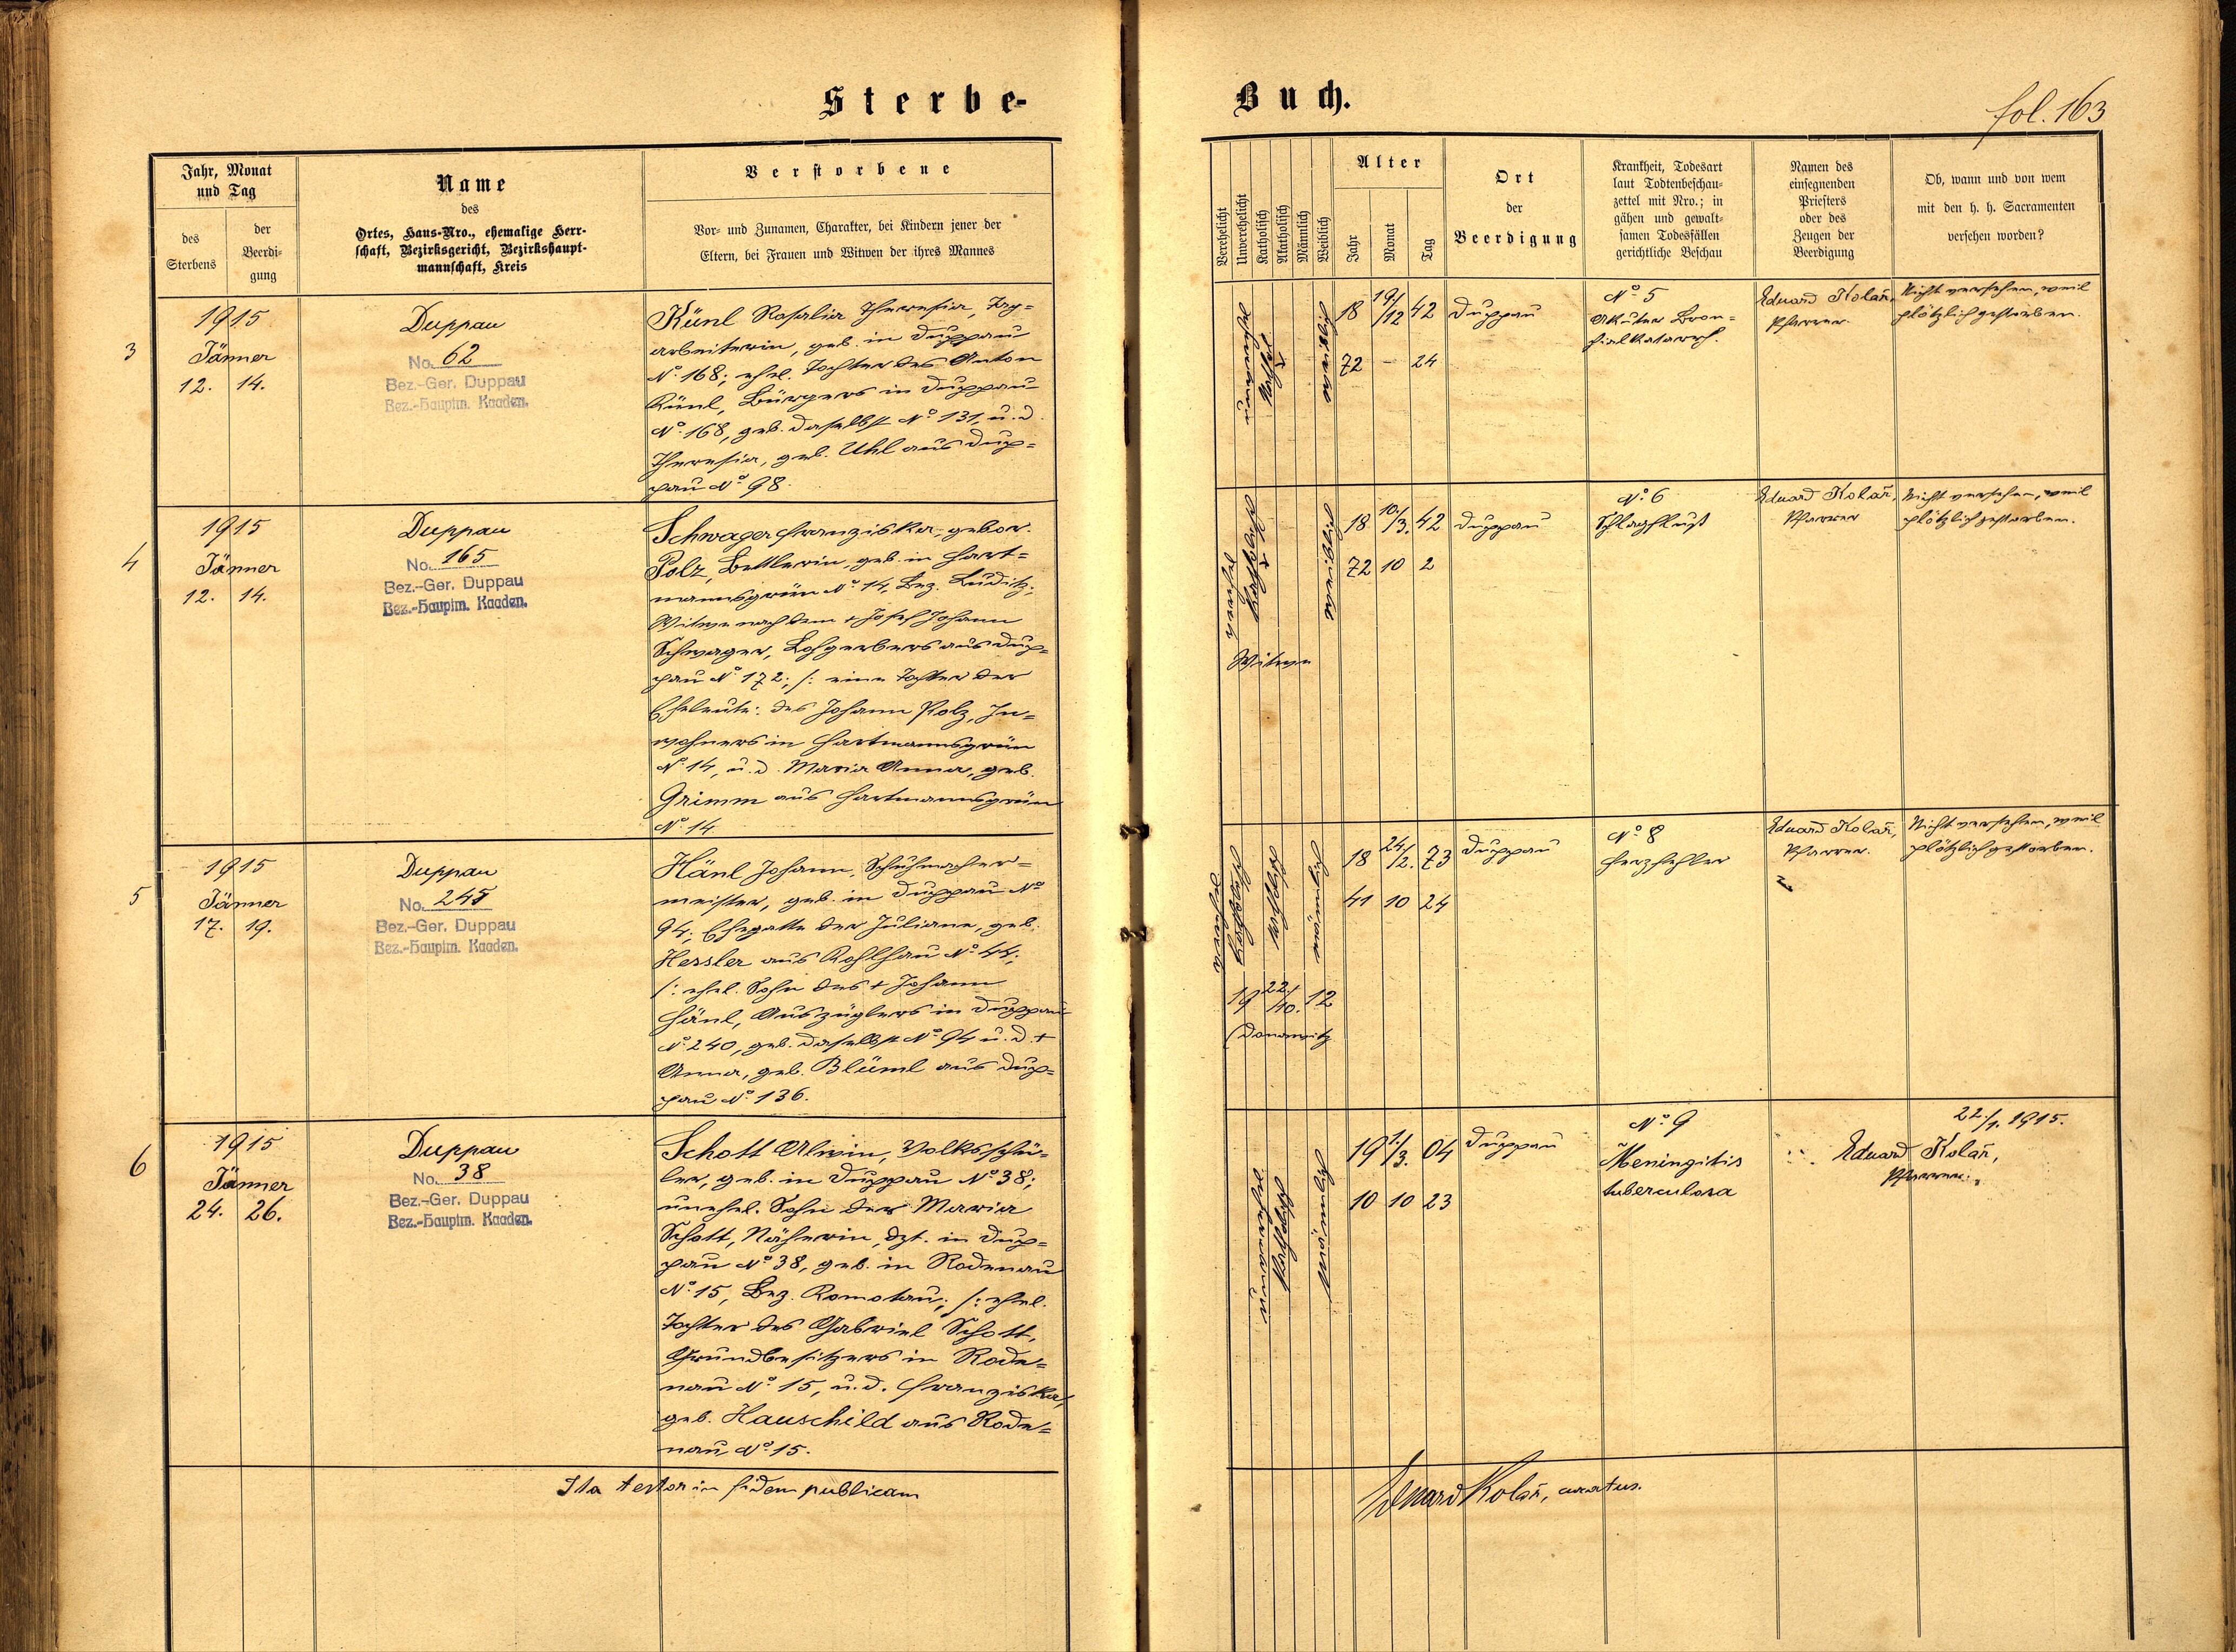 Sterbe-
Buch.
fol. 163
Jahr, Monat
und Tag
des
Sterbens
der
Beerdi-
gung
Name
des
Ortes, Haus-Nro., ehemalige Herr-
schaft, Bezirksgericht, Bezirkshaupt-
mannschaft, Kreis
Verstorbene
Vor- und Zunamen, Charakter, bei Kindern jener der
Eltern, bei Frauen und Witwen der ihres Mannes
Verehelicht
Unverehelicht
Katholisch
Akatholisch
Männlich
Weiblich
Alter
Jahr
Monat
Tag
Ort
der
Beerdigung
Krankheit, Todesart
laut Todtenbeschau-
zettel mit Nro.; in
gähen und gewalt-
samen Todesfällen
gerichtliche Beschau
Namen des
einsegnenden
Priesters
oder des
Zeugen der
Beerdigung
Ob, wann und von wem
mit den h. h. Sacramenten
versehen worden?
3
1915
Jänner
12. 14.
Duppau
No. 62
Bez.-Ger. Duppau
Bez.-Hauptm. Kaaden.
Künl Rosalia Theresia, Tag=
arbeiterin, geb. in Duppau
No. 168; ehel. Tochter des Anton
Künl, Bürgers in Duppau
No. 168, geb. daselbst No. 131, u. d.
Theresia, geb. Uhl aus Dup=
pau No. 98.
unverehel
kathol
weiblich
18 19/12 42
72 — 24
Duppau
No. 5
Akuter Bron=
chialkatarrh.
Eduard Kolař,
Pfarrer.
Nicht versehen, weil
plötzlich gestorben.
4
1915
Jänner
12. 14.
Duppau
No. 165
Bez.-Ger. Duppau
Bez.-Hauptm. Kaaden.
Schwager Franziska, gebor.
Polz, Bettlerin, geb. in Hart=
mannsgrün No. 14, Bez. Luditz;
Witwe nach dem + Josef Johann
Schwager, Lohgerbers aus Dup=
pau No. 172; /: eine Tochter der
Eheleute: des Johann Polz, In=
wohners in Hartmannsgrün
No. 14, u. d. Maria Anna, geb.
Grimm aus Hartmannsgrün
No. 14
verehel
Witwe
katholisch
weiblich
18 10/3. 42
72 10 2
Duppau
No. 6
Schlagfluß
Eduard Kolař,
Pfarrer
Nicht versehen, weil
plötzlich gestorben.
5
1915
Jänner
17. 19.
Duppau
No. 245
Bez.-Ger. Duppau
Bez.-Hauptm. Kaaden.
Hänl Johann, Schuhmacher=
meister, geb. in Duppau No.
94; Ehegatte der Juliane, geb.
Hessler aus Kohlhau No. 44;
/: ehel. Sohn des + Johann
Hänl, Auszüglers in Duppau
No. 240, geb. daselbst No. 94 u. d. +
Anna, geb. Blüml aus Dup=
pau No. 136.
verehel
katholisch
männlich
19 22./10. 12
18 24./2. 73
41 10 24
Duppau
No. 8
Herzfehler
Eduard Kolař,
Pfarrer.
Nicht versehen, weil
plötzlich gestorben.
6
1915
Jänner
24. 26.
Duppau
No. 38
Bez.-Ger. Duppau
Bez.-Hauptm. Kaaden.
Schott Alwin, Volksschü-
ler, geb. in Duppau No. 38;
unehel. Sohn der Maria
Schott, Näherin, dzt. in Dup=
pau No. 38, geb. in Rodenau
No. 15, Bez. Komotau; /: ehel.
Tochter des Gabriel Schott,
Grundbesitzers in Rode=
nau No. 15, u. d. Franziska,
geb. Hauschild aus Rode=
nau No. 15.
unverehel
katholisch
männlich
19 1./3. 04
10 10 23
Duppau
No. 9
Meningitis
tuberculosa
22./1. 1915.
Eduard Kolař,
Pfarrer.
Ita testor in fidem publicam
Eduard Kolař, curatus.